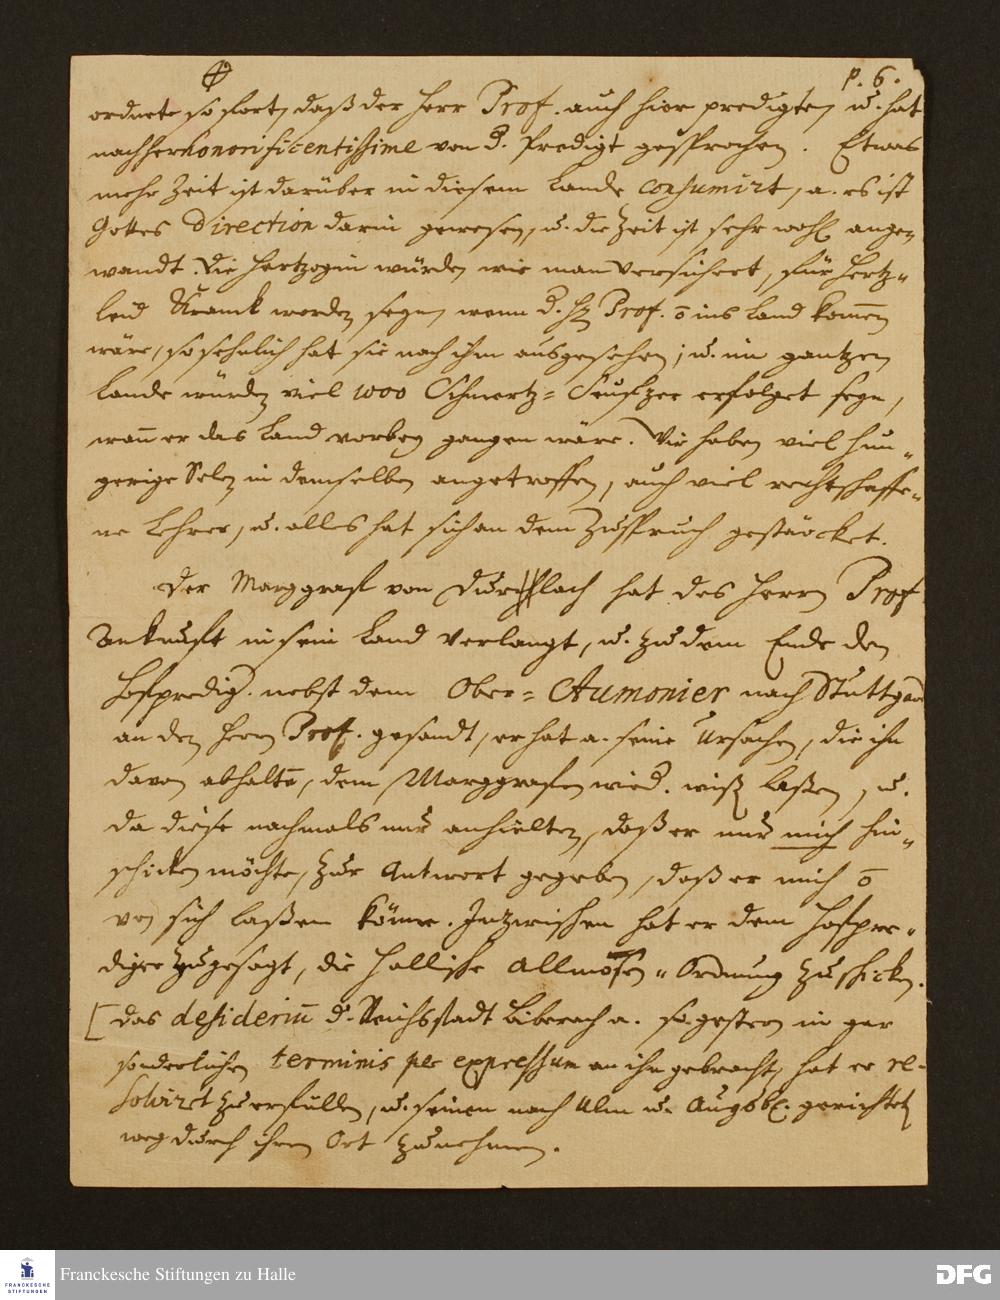 p. 6.
ordnete so fort, daß der Herr Prof. auch hier predigten, u. hat
nachher honorificentissime von d. Predigt gesprochen. Etwas
mehr Zeit ist darüber in diesem Lande consumirt, a. es ist
Gottes Direction darin gewesen, u. die Zeit ist sehr wohl ange-
wandt. Die Hertzogin würden wie man versichert, für Hertz-
leid Kranck worden seyn, wenn d. H. Prof. ō ins Land kom̄en
wäre, so sehnlich hat sie nach ihm ausgesehen; u. im gantzen
Lande würden viel 1000 Schmertz-Seufzer erfolget seyn,
wan̄ er das Land vorbey gangen wäre. Wir haben viel hun-
gerige Selen in demselben angetroffen, auch viel rechtschaffe-
ne Lehrer, u. alles hat sich an dem Zuspruch gestärcket.
Der Marggraf von Durlach hat des Herrn Prof
Ankunft in sein Land verlangt, u. zu dem Ende den
Hofpredig. nebst dem Ober-Aumonier nach Stuttgard
an den Herrn Prof. gesandt, er hat a. seine Ursachen, die ihn
davon abhaltē, dem Marggrafen wied. wißen laßen, u.
da diese nachmals nur anhielten, daß er nur mich hin-
schicken möchte, zur Antwort gegeben, daß er mich ō
von sich laßen könne. Inzwischen hat er dem Hofpre-
diger zugesagt, die Hallische Allmosen-Ordnung zu schicken.
[Das desideriū d. Reichsstadt Biberach a. so gestern in gar
sonderlichen terminis per expressum an ihn gebracht, hat er re-
solvirt zu erfüllen, u. seinen nach Ulm u. Augsb. gerichteten
weg durch ihren Ort zu nehmen.
FRANCKESCHE
STIFTUNGEN
Franckesche Stiftungen zu Halle
DFG